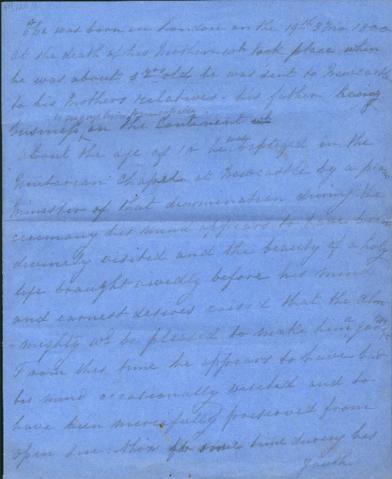 He was born in London on the 19th 3 mo 1800
at the death of his Mother wh took place when
he was about 2 yrs old he was sent to Newcastle
to his Mothers relatives - his father having
business on the Continent
About the age of 12 he was baptized in the
Unitarian Chapel at Newcastle by a
Minister of that denomination during the
ceremony his mind appears to have been
divinely visited and the beauty of a holy
life brought awedly before his mind
and earnest desires raised that the Al
-mighty wd be pleased to make him a good
From this time he appears to have had
his mind occasionally visited and to
have been mercifully preserved from
open sin. time during his
Youth